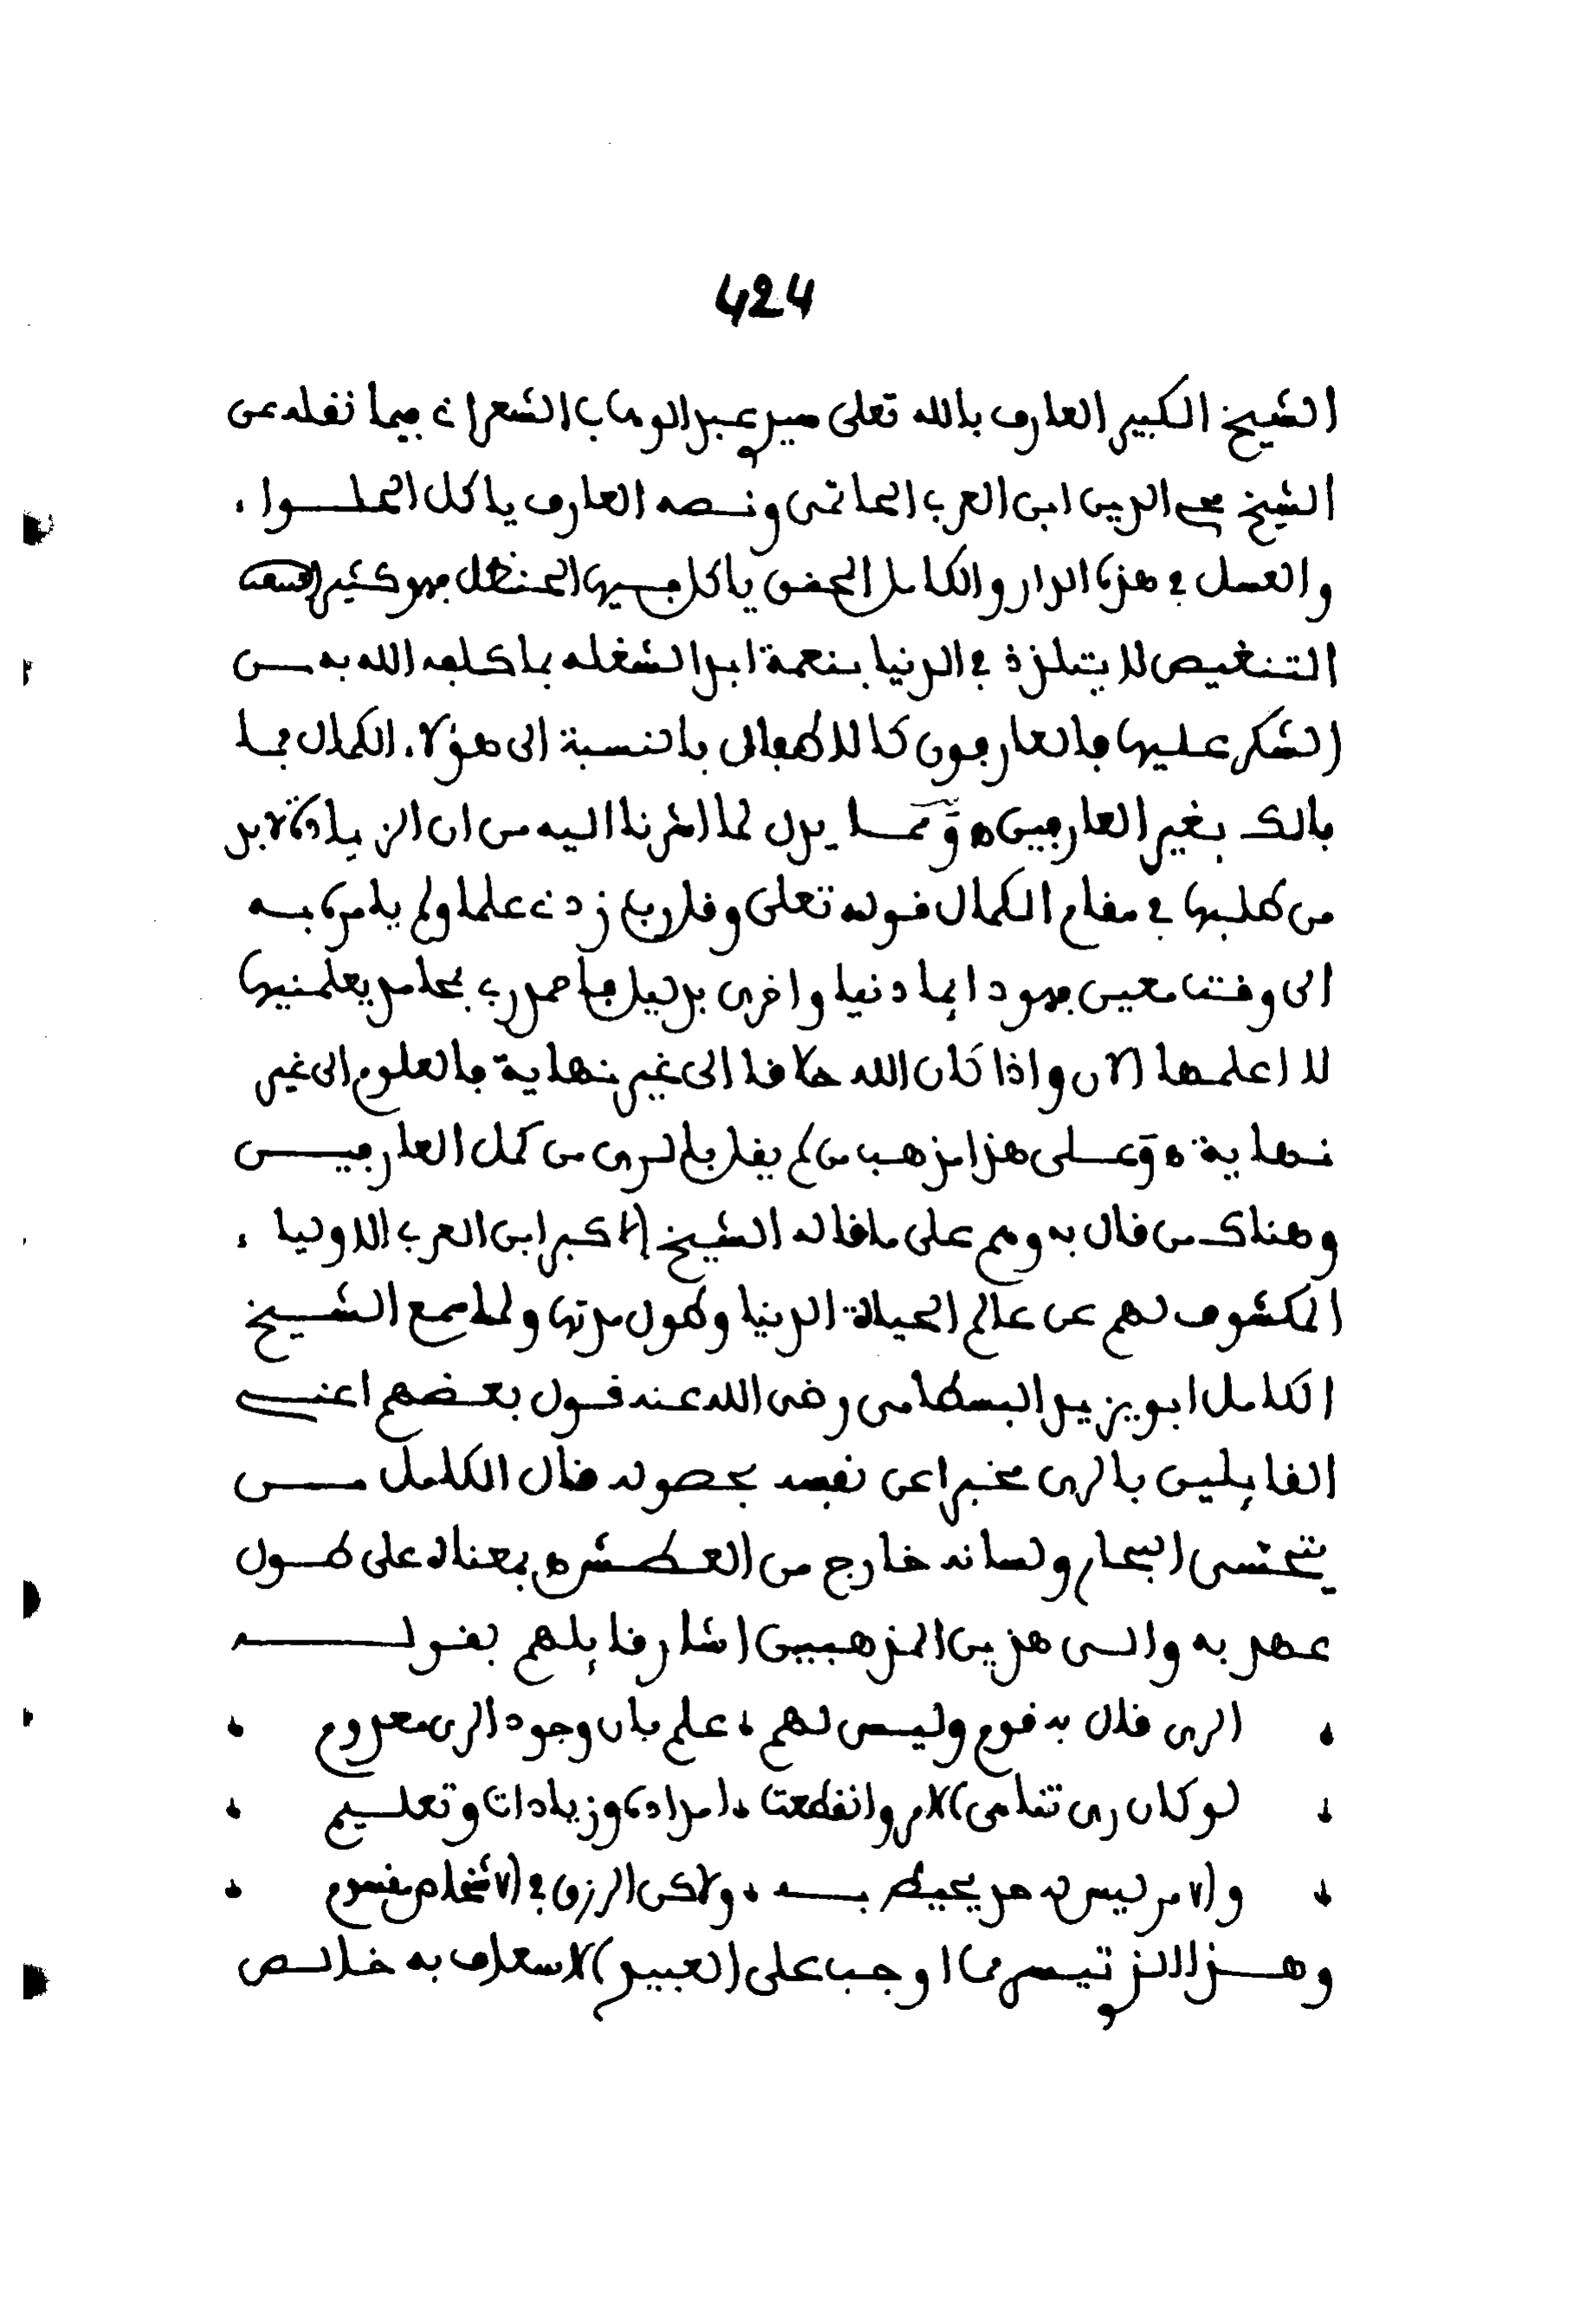 424
الشيخ الكبير العارف بالله تعلى سيدي عبد الوهاب الشعراني فيما نقله عن
الشيخ محي الدين ابن العربي الحاتمي ونصه العارف ياكل الحلوا،
والعسل في هذه الدار والكامل المحض ياكل فيها الحنظل فهو كثير
التنغيص لا يتلذذ في الدنيا بنعمة ابدا لشغله بما كلفه الله به من
الشكر عليها فالعارفون كالاطفال بالنسبة الى هؤلاء الكمال فما
بالك بغير العارفين ه ومما يدل لما اشرنا اليه من ان الزيادة لا بد
من طلبها في مقام الكمال قوله تعلى وقل رب زدني علما ولم يامره به
الى وقت معين فهو دايما دنيا واخرى بدليل فاحمد ربي بمحامد يعلمنيها
لا اعلمها الان واذا كان الله خلاقا الى غير نهاية فالعلوم الى غير
نهاية ه وعلى هذا مذهب من لم يقل بالري من كمل العارفين
وهناك من قال به وهم على ما قاله الشيخ الاكبر ابن العربي الاوليا،
المكشوف لهم عن عالم الحياة الدنيا وطول مدتها ولما سمع الشيخ
الكامل ابو يزيد البسطامي رضي الله عنه قول بعضهم اعني
القايلين بالري مخبرا عن نفسه بحصوله قال الكامل من
يتحسى البحار ولسانه خارج من العطش ه بمعناه على طول
عهد به والى هذين المذهبين اشار قايلهم بقوله
الري قال به قوم وليس لهم ، علم بان وجود الري معدوم
لو كان ري تناهى الامر وانقطعت ، امداده وزيادات وتعليم
والامر ليس له حد يحيط به ، ولاكن الرزق في الاشخاص مقسوم
وهذا الذي تيسر مما اوجب على العبيد الاسعاف به خالص